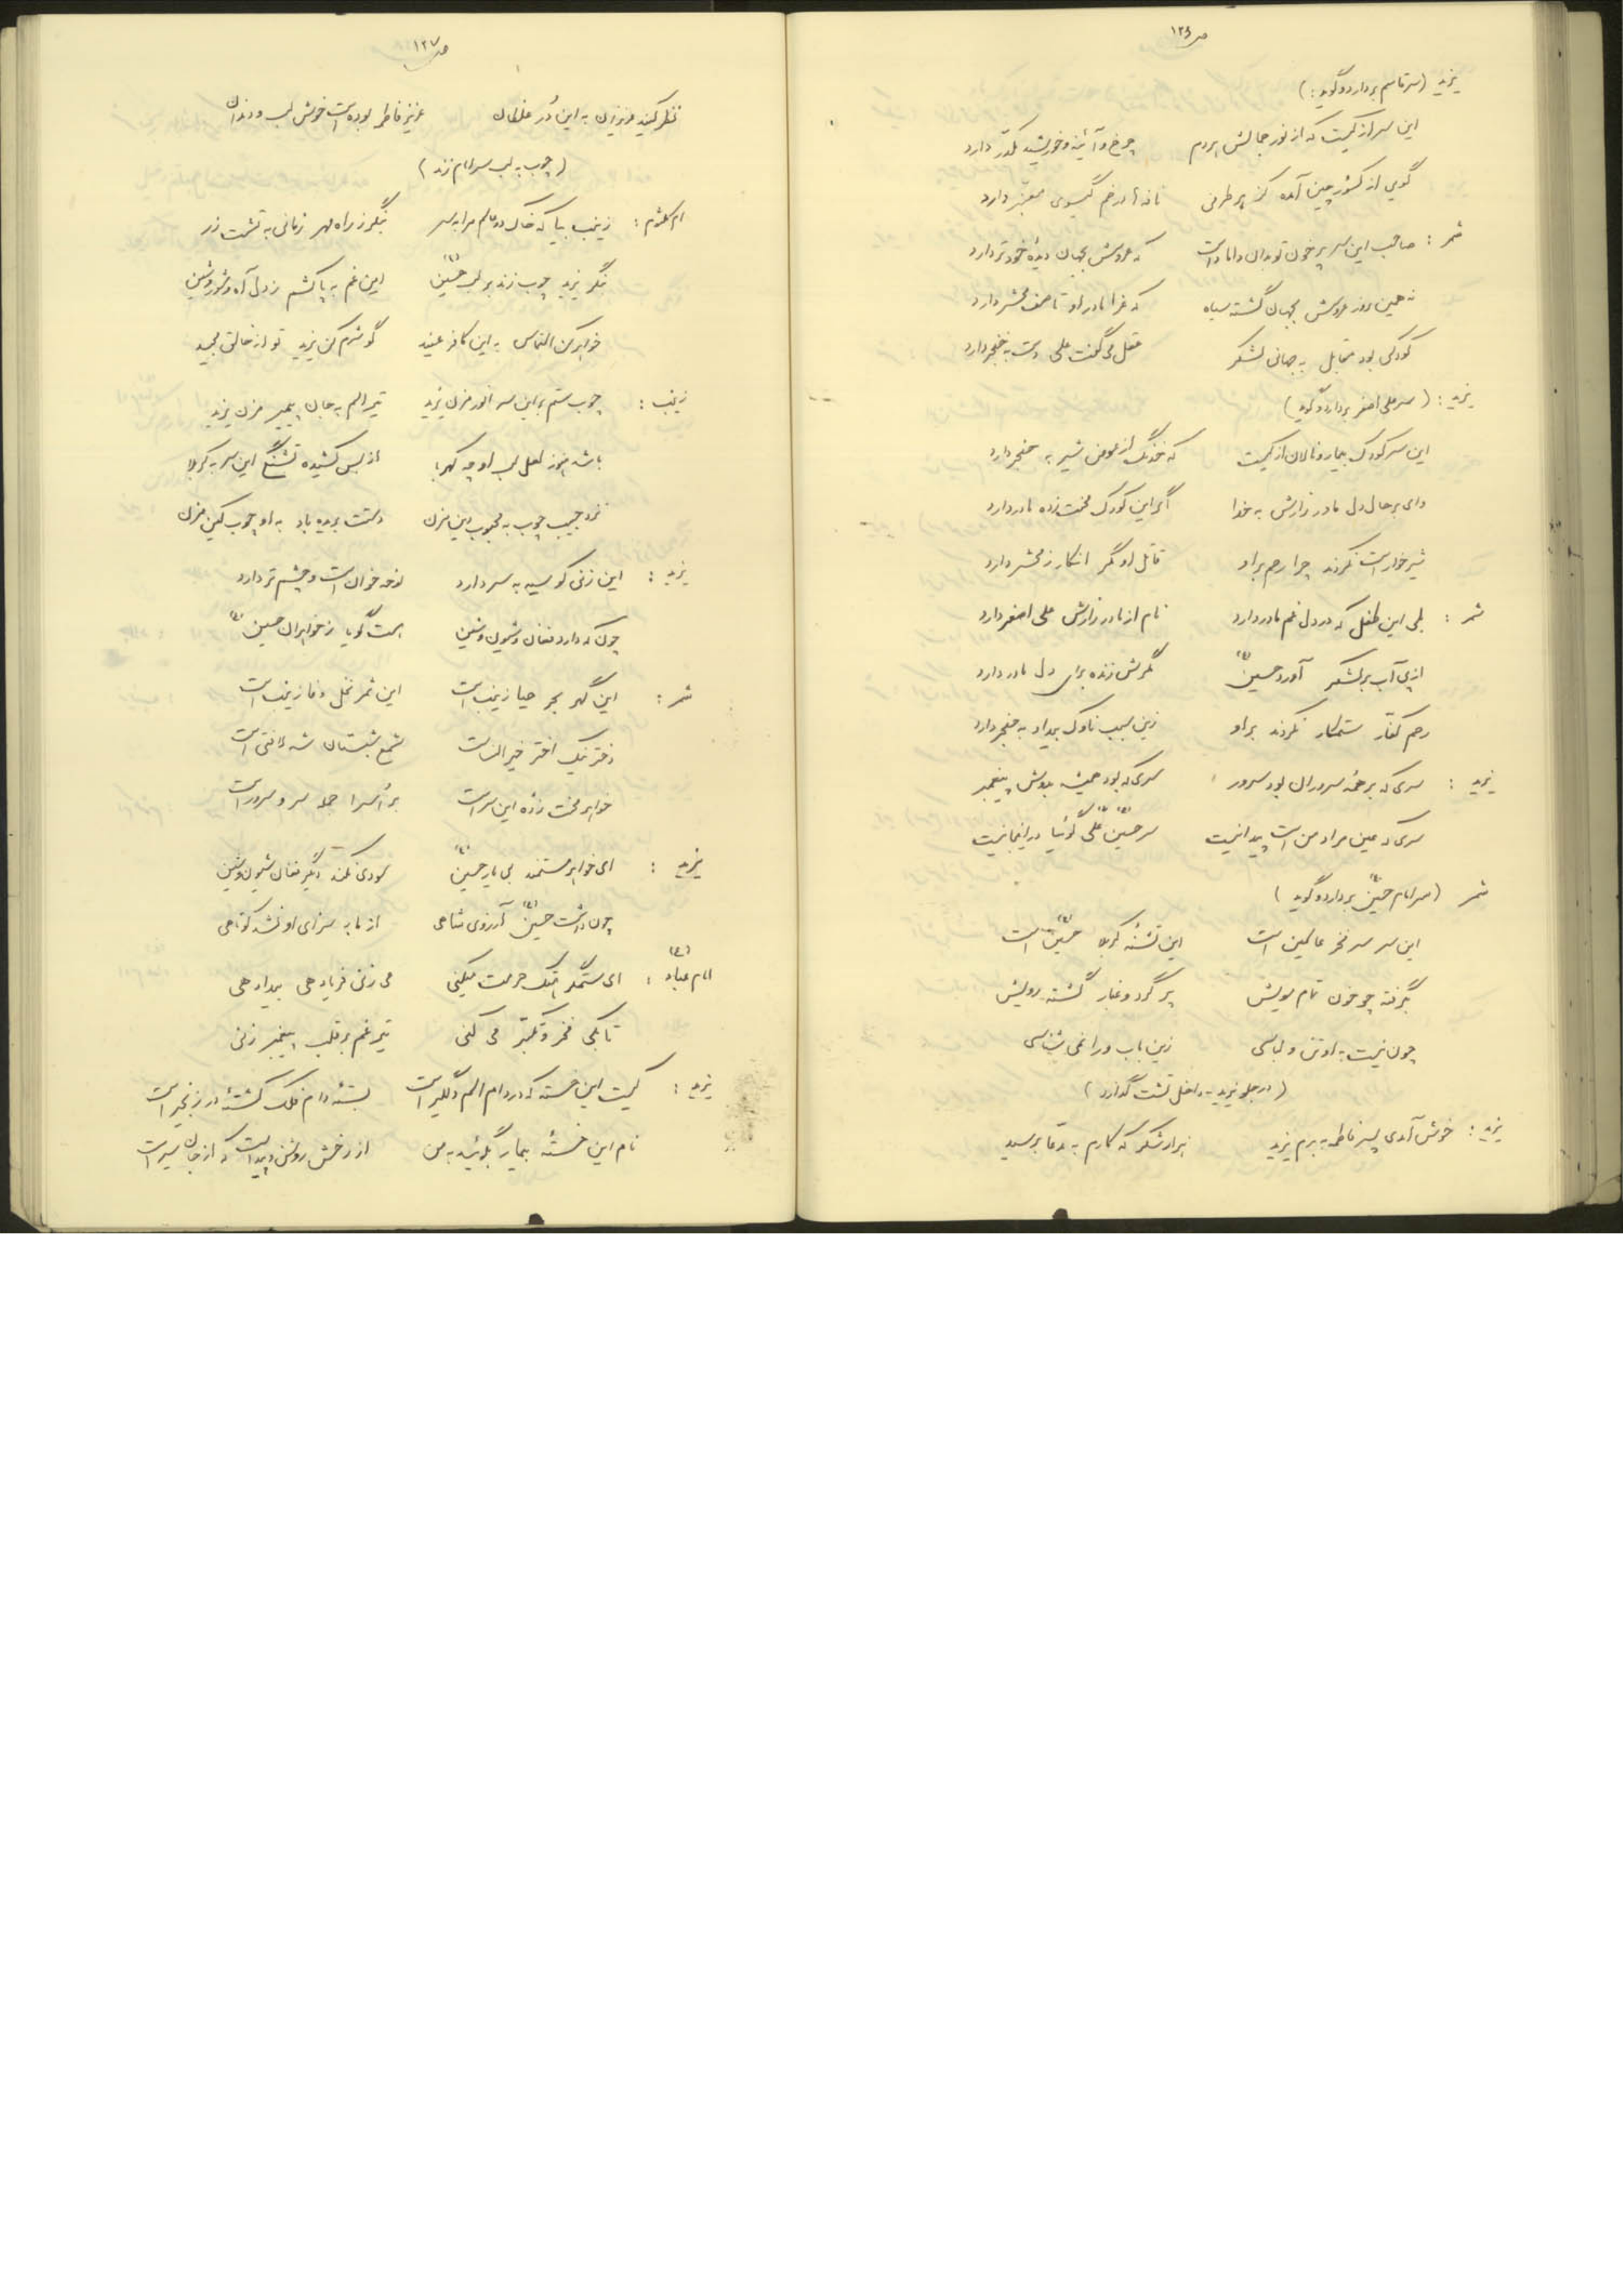 ص ۱۲۶
یزید (سر قاسم بردارد و گوید:)
این سر از کیست که از نور جمالش هر دم چرخ و آئینه خورشید مکدر دارد
گوئی از کشور چین آمده کز هر طرفی نافه ها در خم گیسوی معنبر دارد
شمر : صاحب این سر پر خون تو بدان داماد است که عروسش بجهان دیده خود تر دارد
نه همین روز عروسش بجهان گشته سیاه که عزا مادر او تا صف محشر دارد
کودکی بود مقابل به جهانی لشکر عقل می گفت علی دست به خنجر دارد
یزید : (سر علی اصغر بردارد و گوید)
این سر کودک بیمار و نالان از کیست که خدنگ از عوض شیر به حنجر دارد
وای بر حال دل مادر زارش به خدا اگر این کودک محنت زده مادر دارد
شیر خوار است نکردند چرا رحم بر او قاتل او مگر انکار ز محشر دارد
شمر : بلی این طفل که در دل غم مادر دارد نام از مادر زارش علی اصغر دارد
از پی آب بر لشکر آورد حسین (ع) مگرش زنده برای دل مادر دارد
رحم کفار ستمکار نکردند بر او زین سبب ناوک بیداد به حنجر دارد
یزید : سری که بر همه سروران بود سرور سری که بود همیشه بدوش پیغمبر
سری که عین مراد من است پیدا نیست سر حسین (ع) علی (ع) گوئیا در اینجا نیست
شمر (سر امام حسین (ع) بردارد و گوید)
این سر سر فخر عالمین است این تشنه کربلا حسین (ع) است
بگرفته چو خون تمام مویش پر گرد و غبار گشته رویش
چون نیست به او تن و لباسی زین باب ورا نمی شناسی
(در جلو یزید - داخل تشت گذارد)
یزید : خوش آمدی پسر فاطمه به بزم یزید هزار شکر که کارم به مدعا برسید
ص ۱۲۷
نظر کنید عزیزان به این در غلطان عزیز فاطمه بوده است خوش لب و دندان
(چوب به لب سر امام زند)
ام کلثوم : زینب بیا که خاک دو عالم مرا به سر بنگر ز راه مهر زمانی به تشت زر
بنگر یزید چوب زند بر لب حسین (ع) این غم به پا کشم ز دل آه و شور و شین
خواهر کن التماس به این کافر عنید گو شرم کن یزید تو از خالق مجید
زینب : چوب ستم بر این سر انور مزن یزید تیر الم به جان پیمبر مزن یزید
باشد هنوز لعل لب او چه کهربا از بس کشیده تشنگی این سر به کربلا
نزد حبیب چوب به محبوب دین مزن دستت بریده باد به او چوب کین مزن
یزید : این زنی کو سیه به سر دارد نوحه خوان است و چشم تر دارد
چون که دارد فغان و شیون و شین هست گویا ز خواهران حسین (ع)
شمر : این گهر بحر حیا زینب است این ثمر نخل وفا زینب است
دختر نیک اختر خیر النساست شمع شبستان شه لافتی است
خواهر محنت زده این سر است بر اسرا جمله سر و سرور است
یزید : ای خواهر مستمند بی یار حسین (ع) سودی نکند دگر فغان شیون و شین
چون داشت حسین (ع) آرزوی شاهی از ما به سزای او نشد کوتاهی
امام عباد (ع) : ای ستمگر هتک حرمت میکنی می زنی فریاد هی بیداد هی
تا بکی فخر و تکبر می کنی تیر غم بر قلب پیغمبر زنی
یزید : کیست این خسته که در دام الم دلگیر است بسته دام فلک گشته در زنجیر است
نام این خسته بیمار بگوئید به من از رخش روشن و پیداست که از جان سیر است